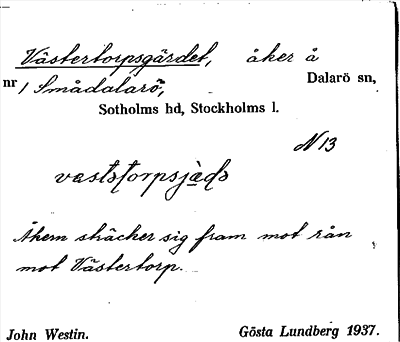 Västertorpsgärdet, åker å
nr 1 Smådalarö, Dalarö sn,
Sotholms hd, Stockholms l.
N 13
Åkern sträcker sig fram mot
mot Västertorp.
John Westin. Gösta Lundberg 1937.